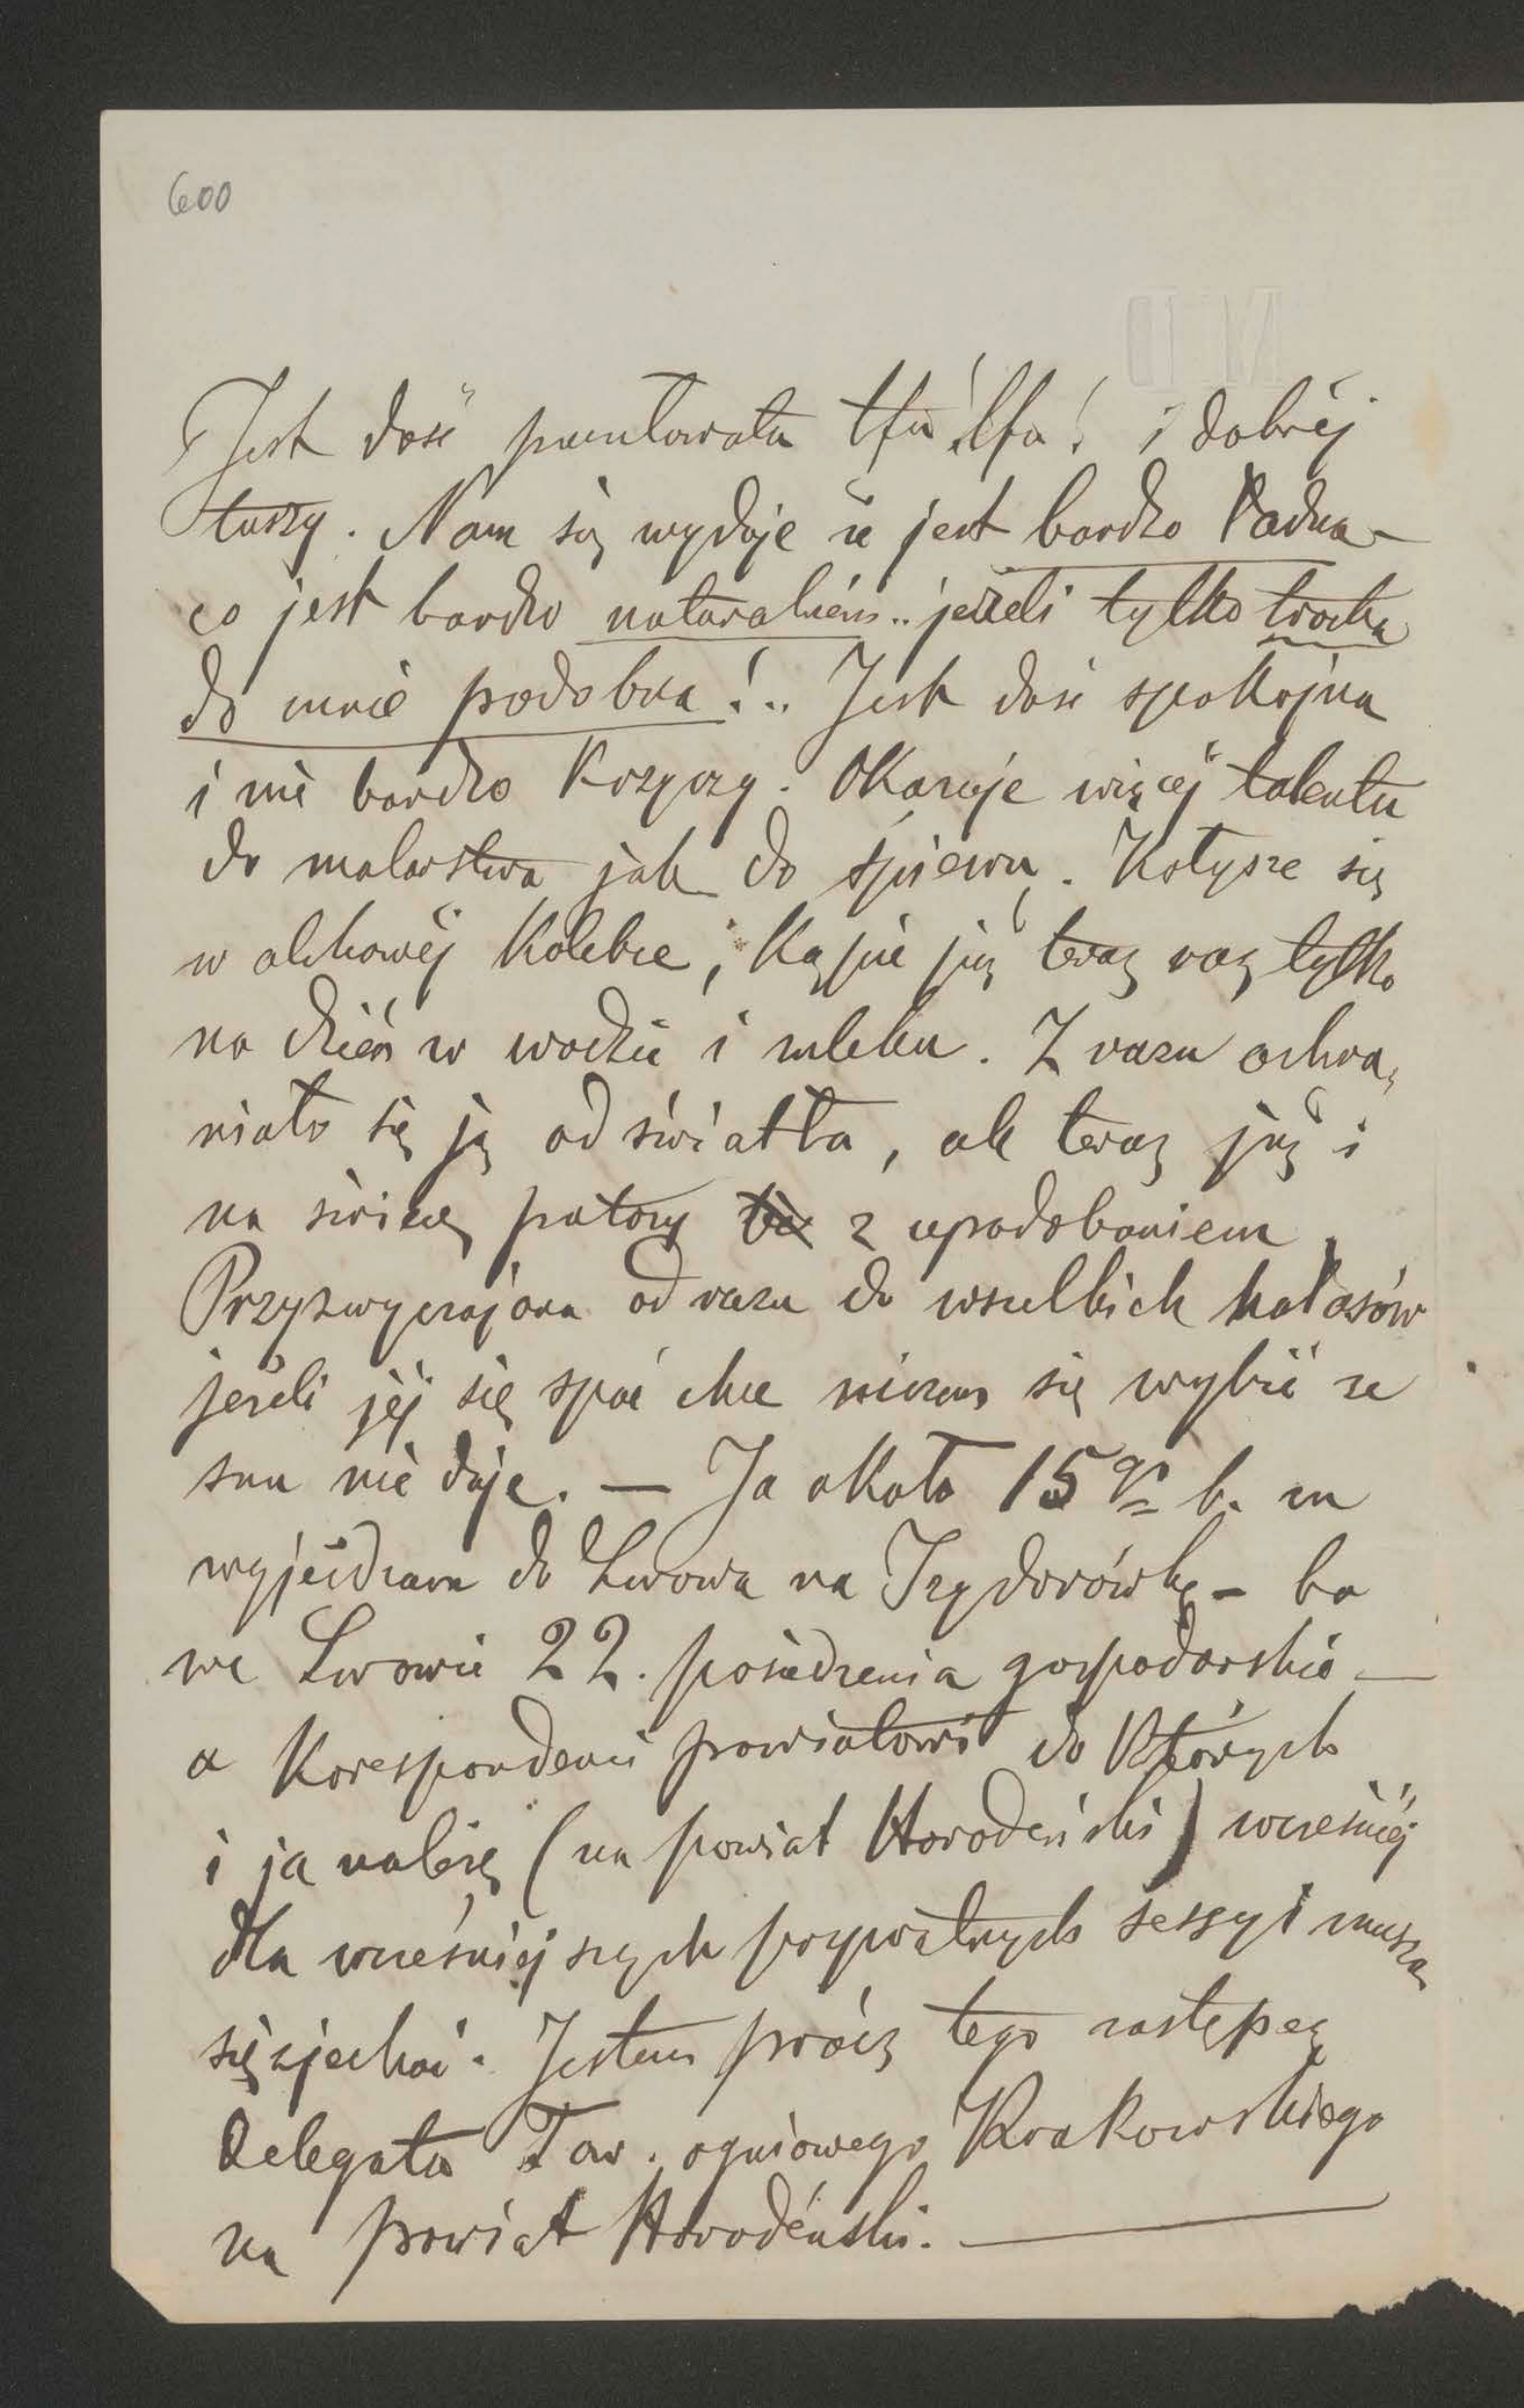 600
Jest dość pucułowata tfu! tfu! i dobréj
tuszy. Nam się wydaje że jest bardzo ładna –
co jest bardzo naturalném.. jeżeli tylko trochę
do mnie podobna!.. Jest dość spokojna
i nie bardzo krzyczy. Okazuje więcéj talentu
do malarstwa jak do śpiewu. Kołysze się
w olchowéj kolebce, kąpie już teraz raz tylko
na dzień w wodzie i mleku. Z razu ochra„
niało się ją od światła, ale teraz już i
na świecę patrzy z upodobaniem.
Przyzwyczajona od razu do wszelkich hałasów
jeżeli jéj się spać chce niczem się wybić ze
snu nie daje. — Ja około 15go b. m
wyjeżdżam do Lwowa na Izydorówkę – bo
we Lwowie 22. posiedzenia gospodarskie —
a korespondenci powiatowi do których
i ja należę (na powiat Horodeński) wcześniéj
dla wcześniejszych prywatnych sessyi muszą
się zjechać. Jestem prócz tego zastępcą
Delegata Tow. ogniowego Krakowskiego
na powiat Horodeński. —